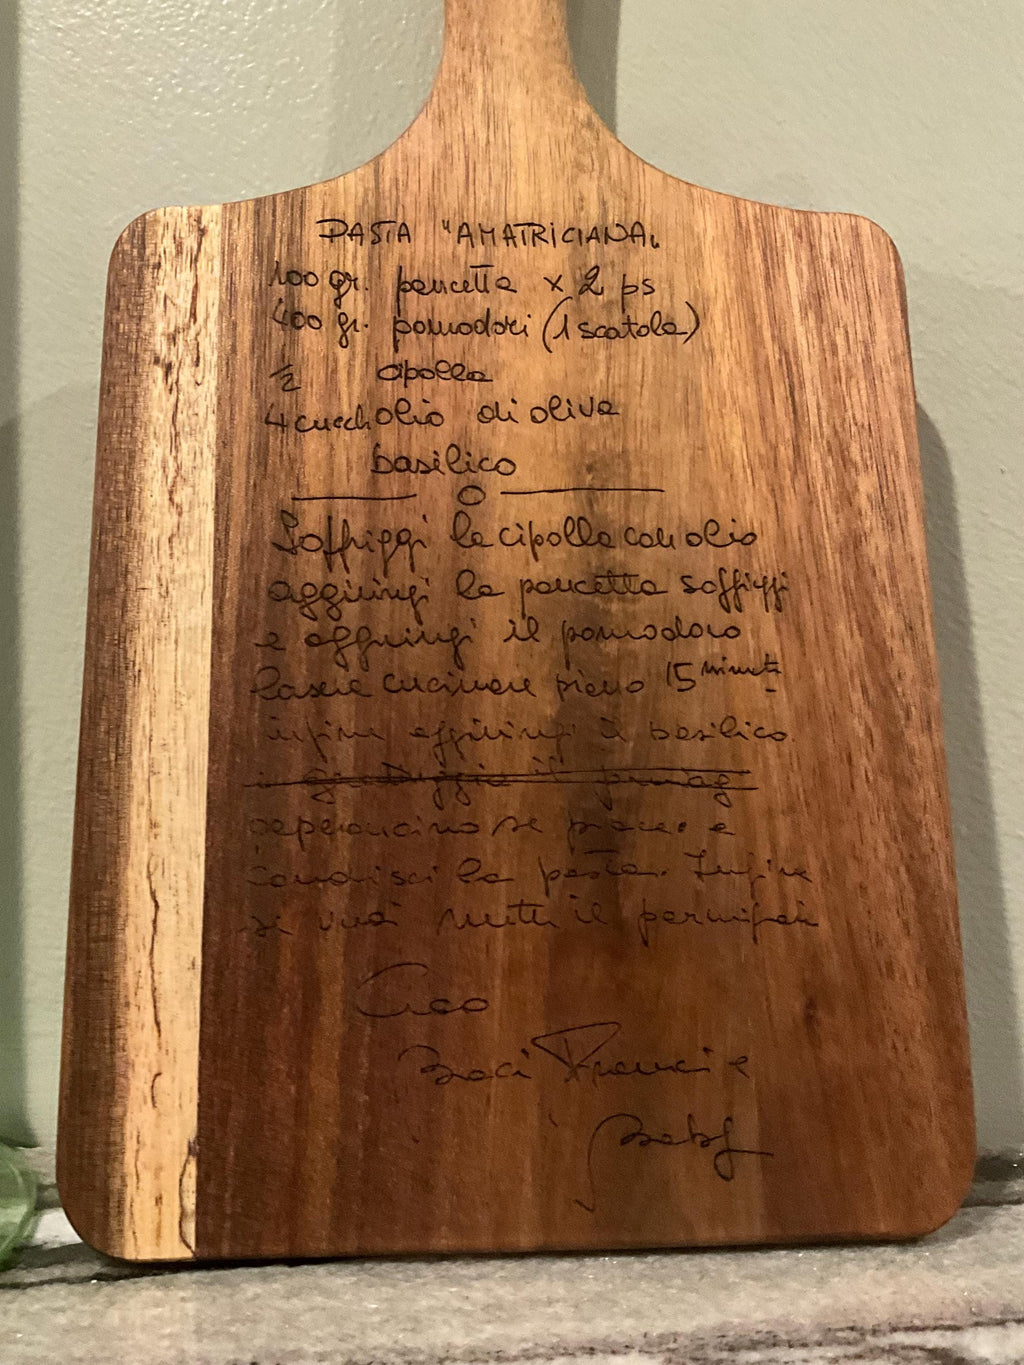 PASTA "AMATRICIANA"
100 gr. pancetta x 2 ps
400 gr. pomodori (1 scatola)
1/2 cipolla
4 cucch olio di oliva
basilico
——— o ———
Soffriggi la cipolla con olio
aggiungi la pancetta soffriggi
e aggiungi il pomodoro
lascia cucinare piano 15 minuti
infine aggiungi il basilico.
il
peperoncino se piace e
condisci la pasta. Infine
se vuoi metti il parmigian
Ciao
Baci Franci e